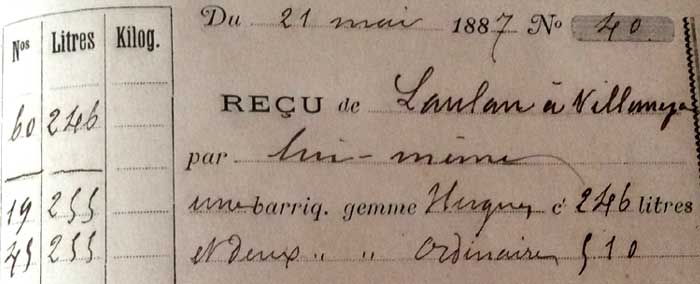 Du 21 mai 1887 No 40
Nos Litres Kilog.
REÇU de Laulan à Villemeya
60 246
par lui-même
19 255 une barriq. gemme Hugues c 246 litres
45 255 et deux " " Ordinaire 510